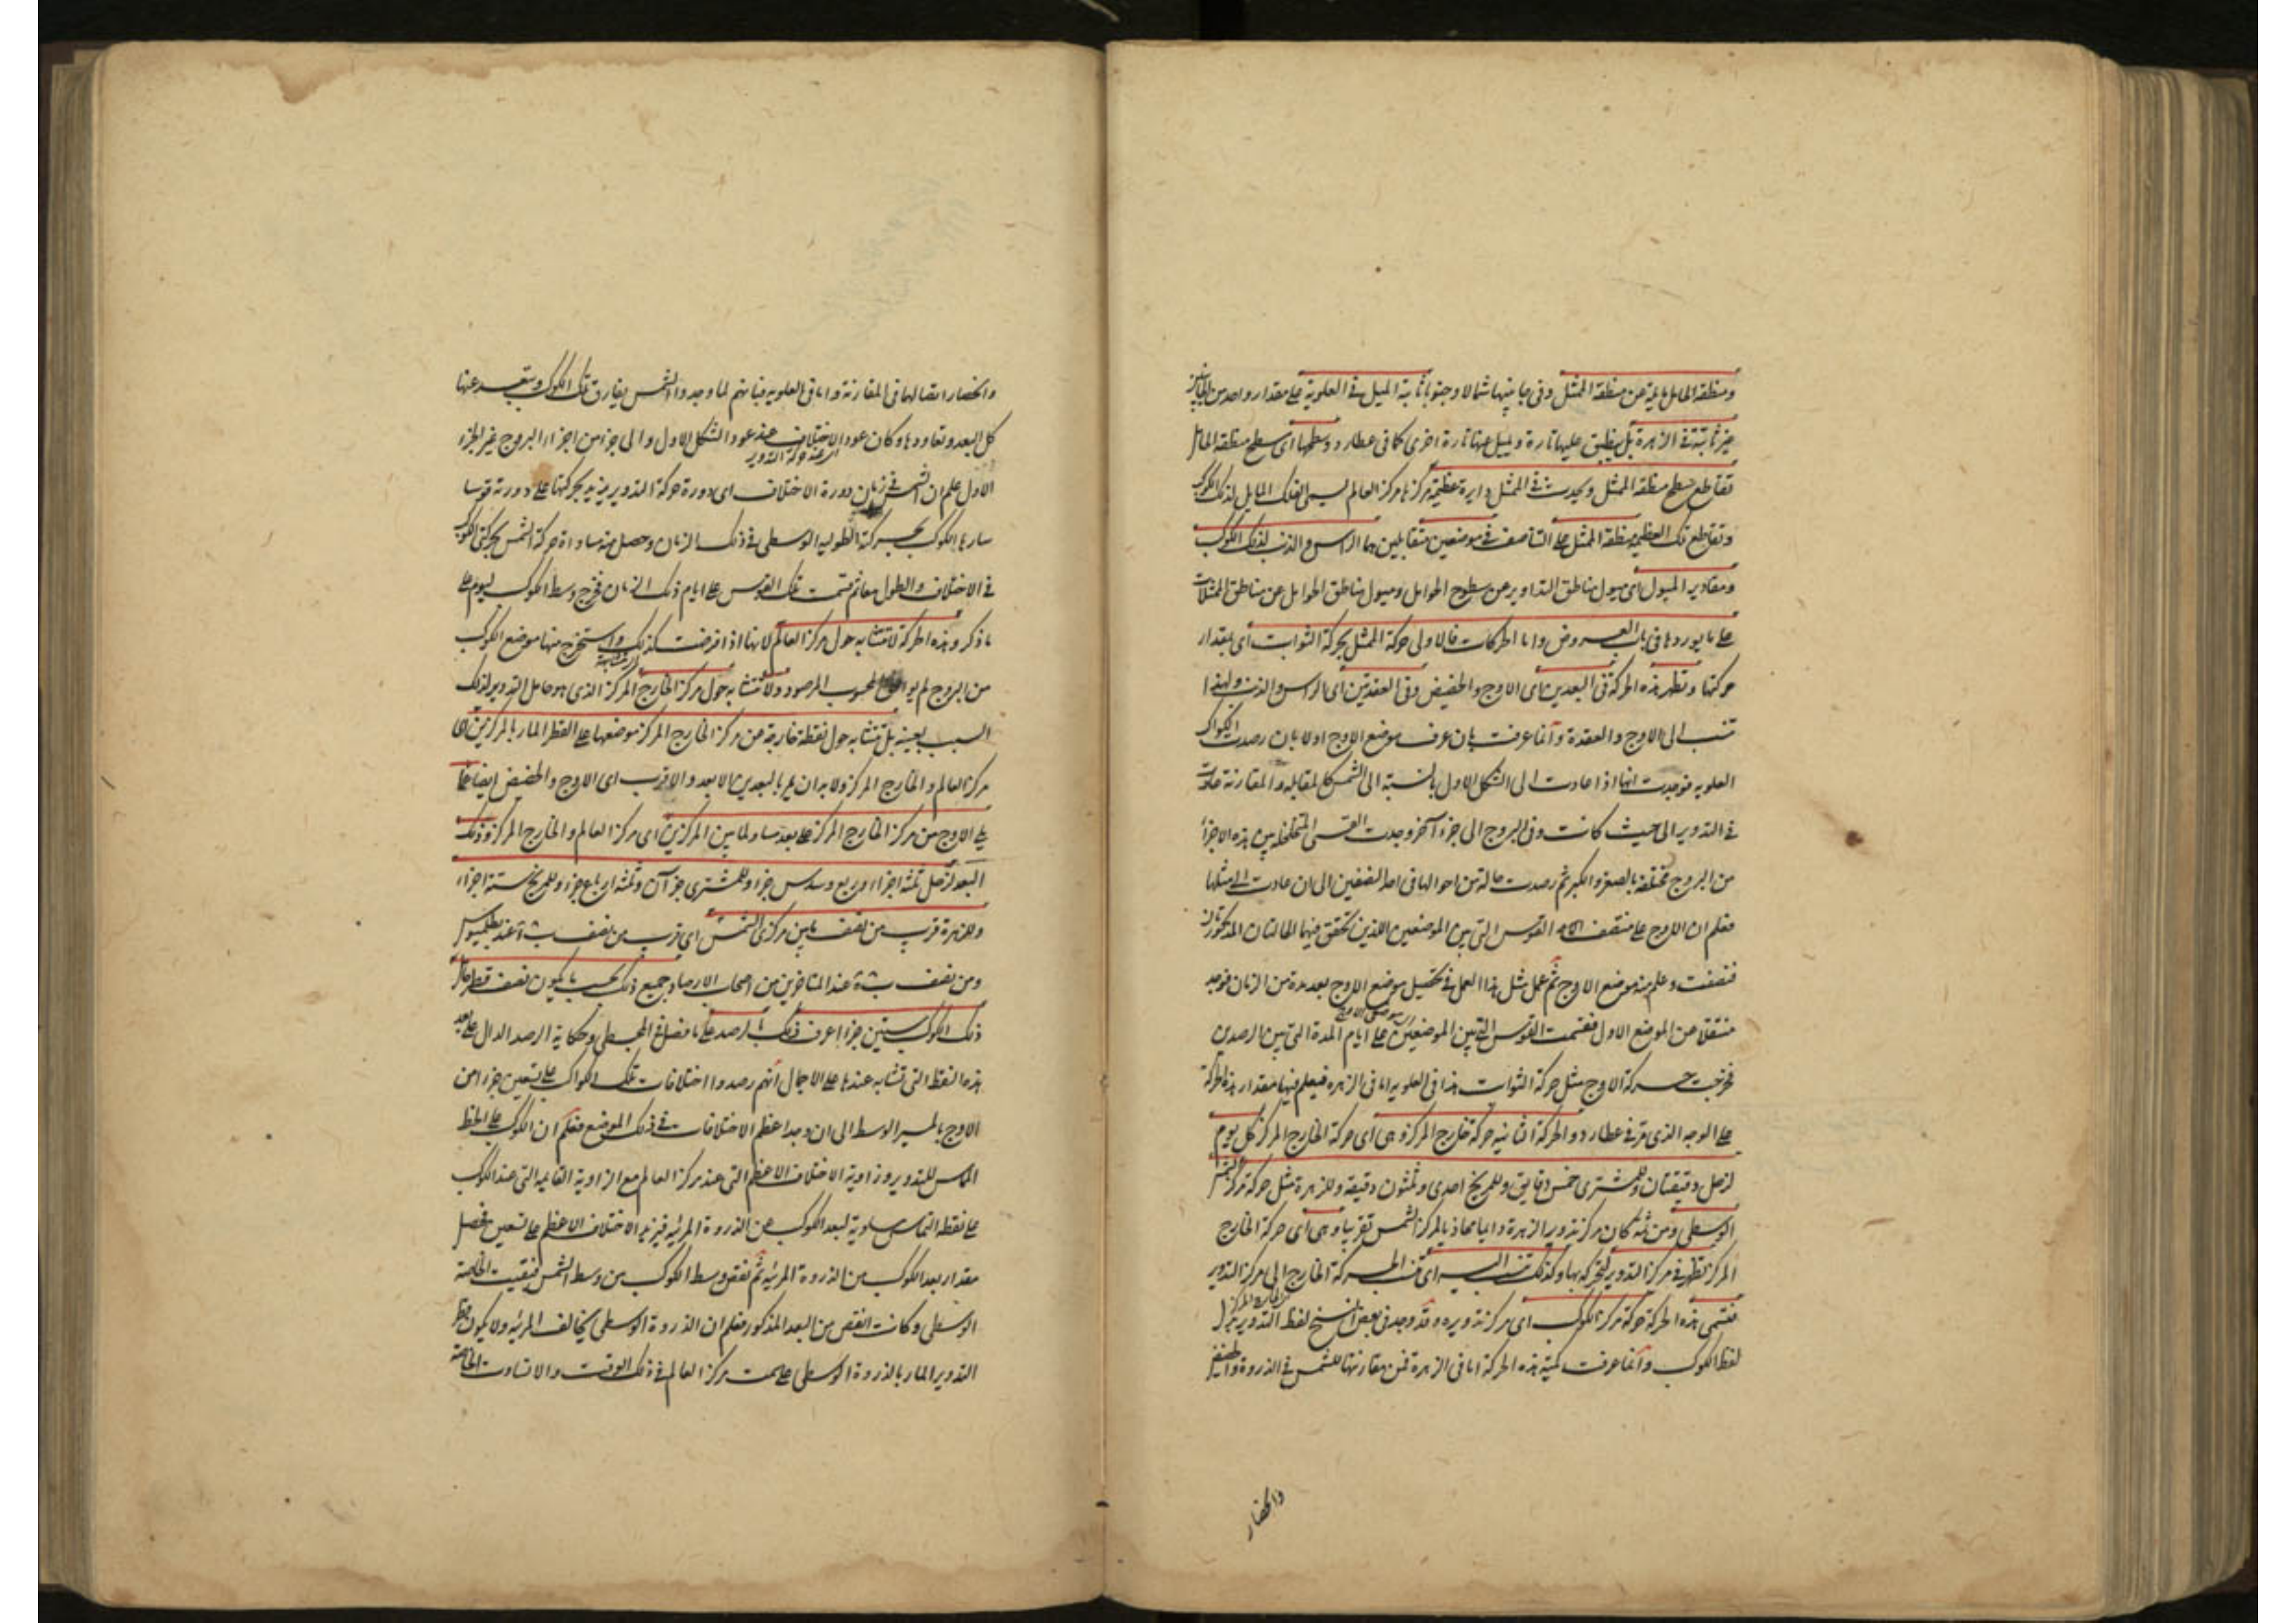 ومنطقة المايل مايلة عن منطقة الممثل وفى جانبيها شمالا وجنوبا ثابتة الميل فى العلوية على مقدار واحد من الجانبين
غير ثابتة فى الزهرة بل ينطبق عليها تارة ويميل عنها تارة اخرى كما فى عطارد وسطحها اى سطح منطقة المايل
تقاطع سطح منطقة الممثل ويحدث فى الممثل دايرة عظيمة مركزها مركز العالم يسمى الفلك المايل لذلك الكوكب
وتقاطع تلك العظيمة منطقة الممثل على التناصف فى موضعين متقابلين هما الراس والذنب لذلك الكوكب
ومقادير الميول اى ميول مناطق التداوير عن سطوح الحوامل وميول مناطق الحوامل عن مناطق الممثلات
على ما يوردها فى باب العروض واما الحركات فالاولى حركة الممثل بحركة الثوابت اى بمقدار
حركتها وتظهر هذه الحركة فى البعدين اى الاوج والحضيض وفى العقدتين اى الراس والذنب ولهذا
تنسب الى الاوج والعقدة وانما عرفت بان عرف موضع الاوج اولا بان رصدت الكواكب
العلوية فوجدت انها اذا عادت الى الشكل الاول بالنسبة الى الشمس كالمقابلة والمقارنة عادت
فى التدوير الى حيث كانت وفى البروج الى جزء آخر ووجدت القسى المتخللة بين هذه الاجزا
من البروج مختلفة بالصغر والكبر ثم رصدت حالة من احوالها فى احد النصفين الى ان عادت الى مثلها
فعلم ان الاوج على منتصف القوس التى بين الموضعين اللذين تحقق فيهما الحالتان المذكورتان
فنصفت وعلم منه موضع الاوج ثم عمل مثل هذا العمل فى تحصيل موضع الاوج بعد مدة من الزمان فوجد
منتقلا عن الموضع الاول فقسمت القوس التى بين الموضعين على ايام المدة التى بين الرصدين
فخرجت حركة الاوج مثل حركة الثوابت هذا فى العلوية اما فى الزهرة فيعلم فيها مقدار هذه الحركة
على الوجه الذى مر فى عطارد والحركة الثانية حركة خارج المركز وهى اى حركة الخارج المركز كل يوم
لزحل دقيقتان وللمشترى خمس دقايق وللمريخ احدى وثلثون دقيقة وللزهرة مثل حركة مركز الشمس
الوسطى ومن ثمه كان مركز تدوير الزهرة دايما محاذيا لمركز الشمس تقريبا وهى اى حركة الخارج
المركز تظهر فى مركز التدوير لتحركه بها وكذلك تنسب اليه اى تنسب الحركة الخارج الى مركز التدوير
فتسمى هذه الحركة حركة مركز الكوكب اى مركز تدويره وقد وجد فى بعض النسخ لفظ التدوير بدل
لفظ الكوكب وانما عرفت كمية هذه الحركة اما فى الزهرة فمن مقارنتها للشمس فى الذروة والحضيض
وانحصار
وانحصار اتصالها فى المقارنة واما فى العلوية فبانهم لما وجدوا الشمس يقارن تلك الكوكب ويبتعد عنها
كل البعد وتعاودها وكان عود الاختلاف عند عود الشكل الاول والى جزء من اجزاء البروج غير الجزء
الاول علم ان الشمس فى زمان دورة الاختلاف اى دورة حركة التدوير يزيد بحركتها على دورته قوسا
سارها الكوكب بحركة الطولية الوسطى فى ذلك الزمان وحصل منه مساواة حركة الشمس بحركتى الكوكب
فى الاختلاف والطول معا ثم قسمت تلك القوس على ايام ذلك الزمان فخرج وسط الكوكب ليوم على
ما ذكر وهذه الحركة لا تتشابه حول مركز العالم لانها اذا فرضت كذلك واستخرج منها موضع الكوكب
من البروج لم يوافق المحسوب المرصود ولا تتشابه حول مركز الخارج المركز الذى هو حامل التدوير لذلك
السبب بعينه بل تتشابه حول نقطة خارجة عن مركز الخارج المركز موضعها على القطر المار بالمركزين اى
مركز العالم والخارج المركز ولا بد ان يمر بالبعدين الابعد والاقرب اى الاوج والحضيض ايضا مما
يلى الاوج من مركز الخارج المركز على بعد مساو لما بين المركزين اى مركز العالم والخارج المركز وذلك
البعد لزحل ثلثة اجزاء وربع وسدس جزء وللمشترى جزآن وثلثة ارباع جزء وللمريخ ستة اجزاء
وللزهرة قريب من نصف ما بين مركزى الشمس اى قريب من نصف عند بطلميوس
ومن نصف عند المتاخرين من اصحاب الارصاد جميع ذلك بحسب ما يكون نصف قطر حامل
ذلك الكوكب ستين جزءا عرف ذلك بالرصد على ما فصل فى المجسطى وحكاية الرصد الدال على بعد
هذه النقط التى تتشابه عندها على الاجمال انهم رصدوا اختلافات تلك الكواكب على تسعين جزءا من
الاوج بالمسير الوسط الى ان وجد اعظم الاختلافات فى ذلك الموضع فعلم ان الكوكب على الخط
المماس للتدوير وزاوية الاختلاف الاعظم التى عند مركز العالم مع الزاوية القايمة التى عند الكوكب
على نقطة التماس مساوية لبعد الكوكب عن الذروة المرئية فيزيد الاختلاف الاعظم على تسعين فحصل
مقدار بعد الكوكب من الذروة المرئية ثم نقص وسط الكوكب من وسط الشمس فبقيت الخاصة
الوسطى وكانت انقص من البعد المذكور فعلم ان الذروة الوسطى يخالف المرئية ولا يكون قطر
التدوير المار بالذروة الوسطى على سمت مركز العالم فى ذلك الوقت والا تساوت الخاصة